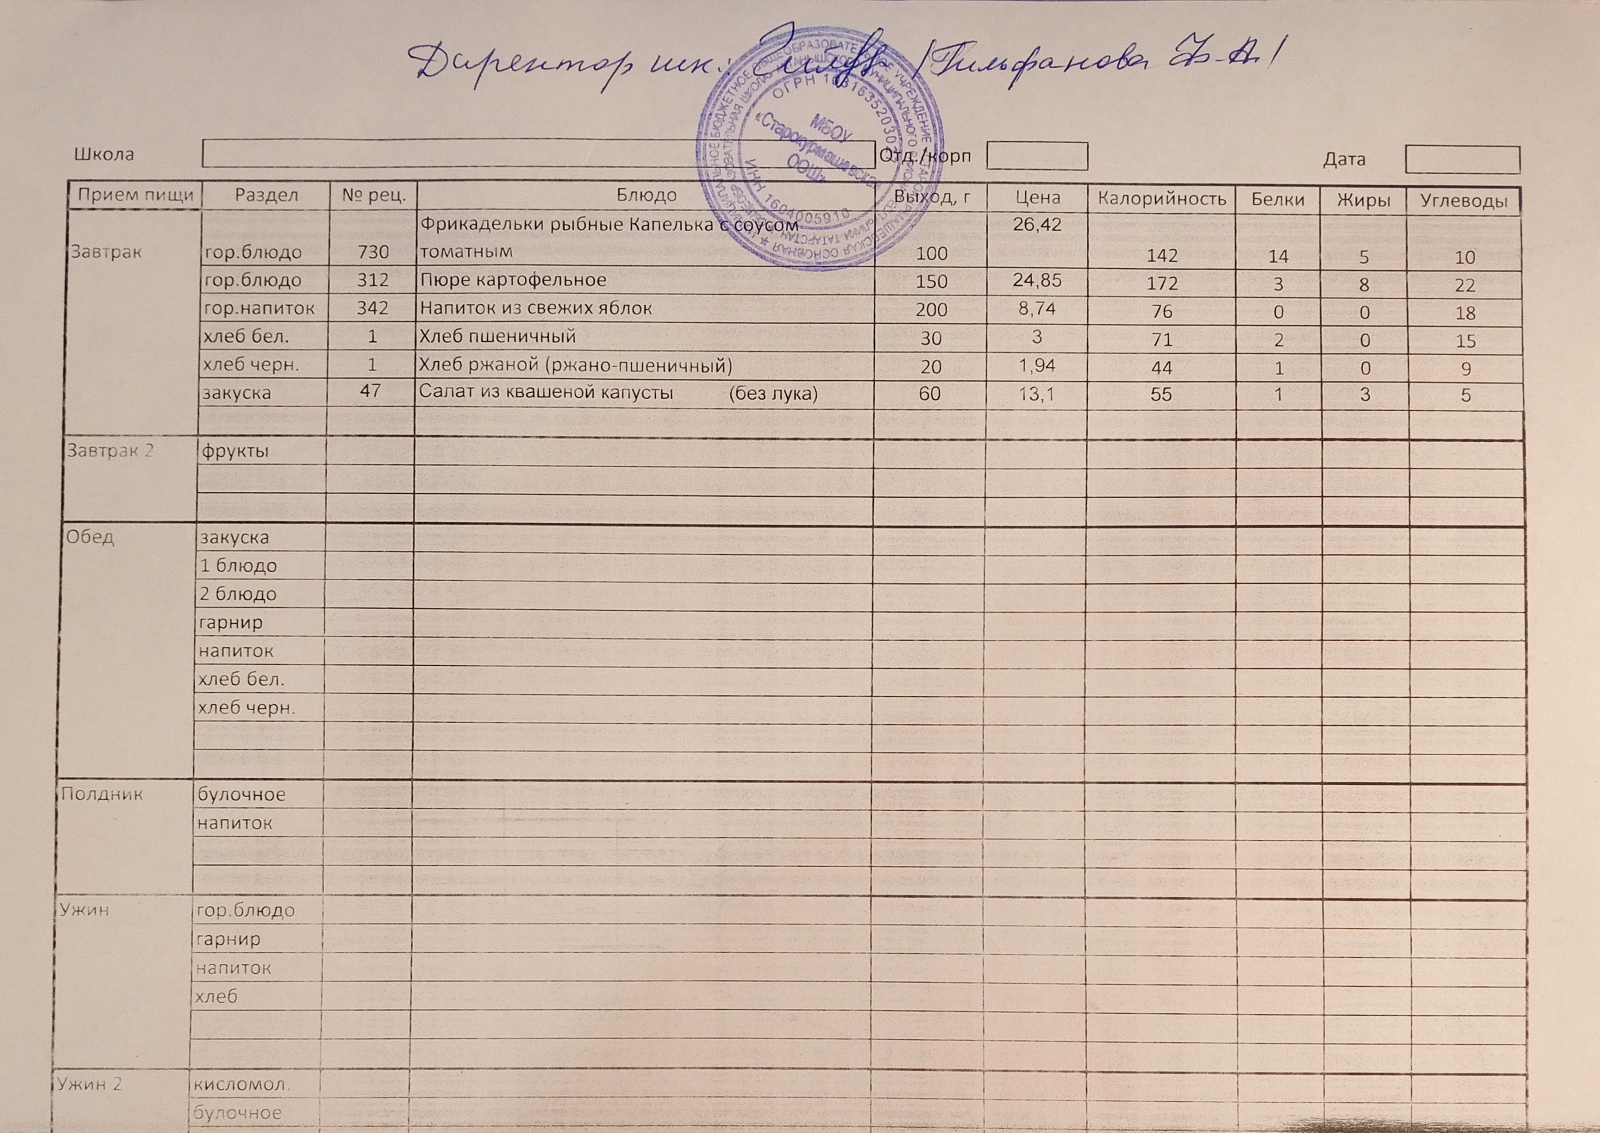 Директор шк. /Гильфанова А./
МБОУ
«Старокурмашевская
ООШ»
ИНН 1604005910
Школа Отд./корп Дата
Прием пищи Раздел № рец. Блюдо Выход, г Цена Калорийность Белки Жиры Углеводы
Фрикадельки рыбные Капелька с соусом 26,42
Завтрак гор.блюдо 730 томатным 100 142 14 5 10
гор.блюдо 312 Пюре картофельное 150 24,85 172 3 8 22
гор.напиток 342 Напиток из свежих яблок 200 8,74 76 0 0 18
хлеб бел. 1 Хлеб пшеничный 30 3 71 2 0 15
хлеб черн. 1 Хлеб ржаной (ржано-пшеничный) 20 1,94 44 1 0 9
закуска 47 Салат из квашеной капусты (без лука) 60 13,1 55 1 3 5
Завтрак 2 фрукты
Обед закуска
1 блюдо
2 блюдо
гарнир
напиток
хлеб бел.
хлеб черн.
Полдник булочное
напиток
Ужин гор.блюдо
гарнир
напиток
хлеб
Ужин 2 кисломол.
булочное